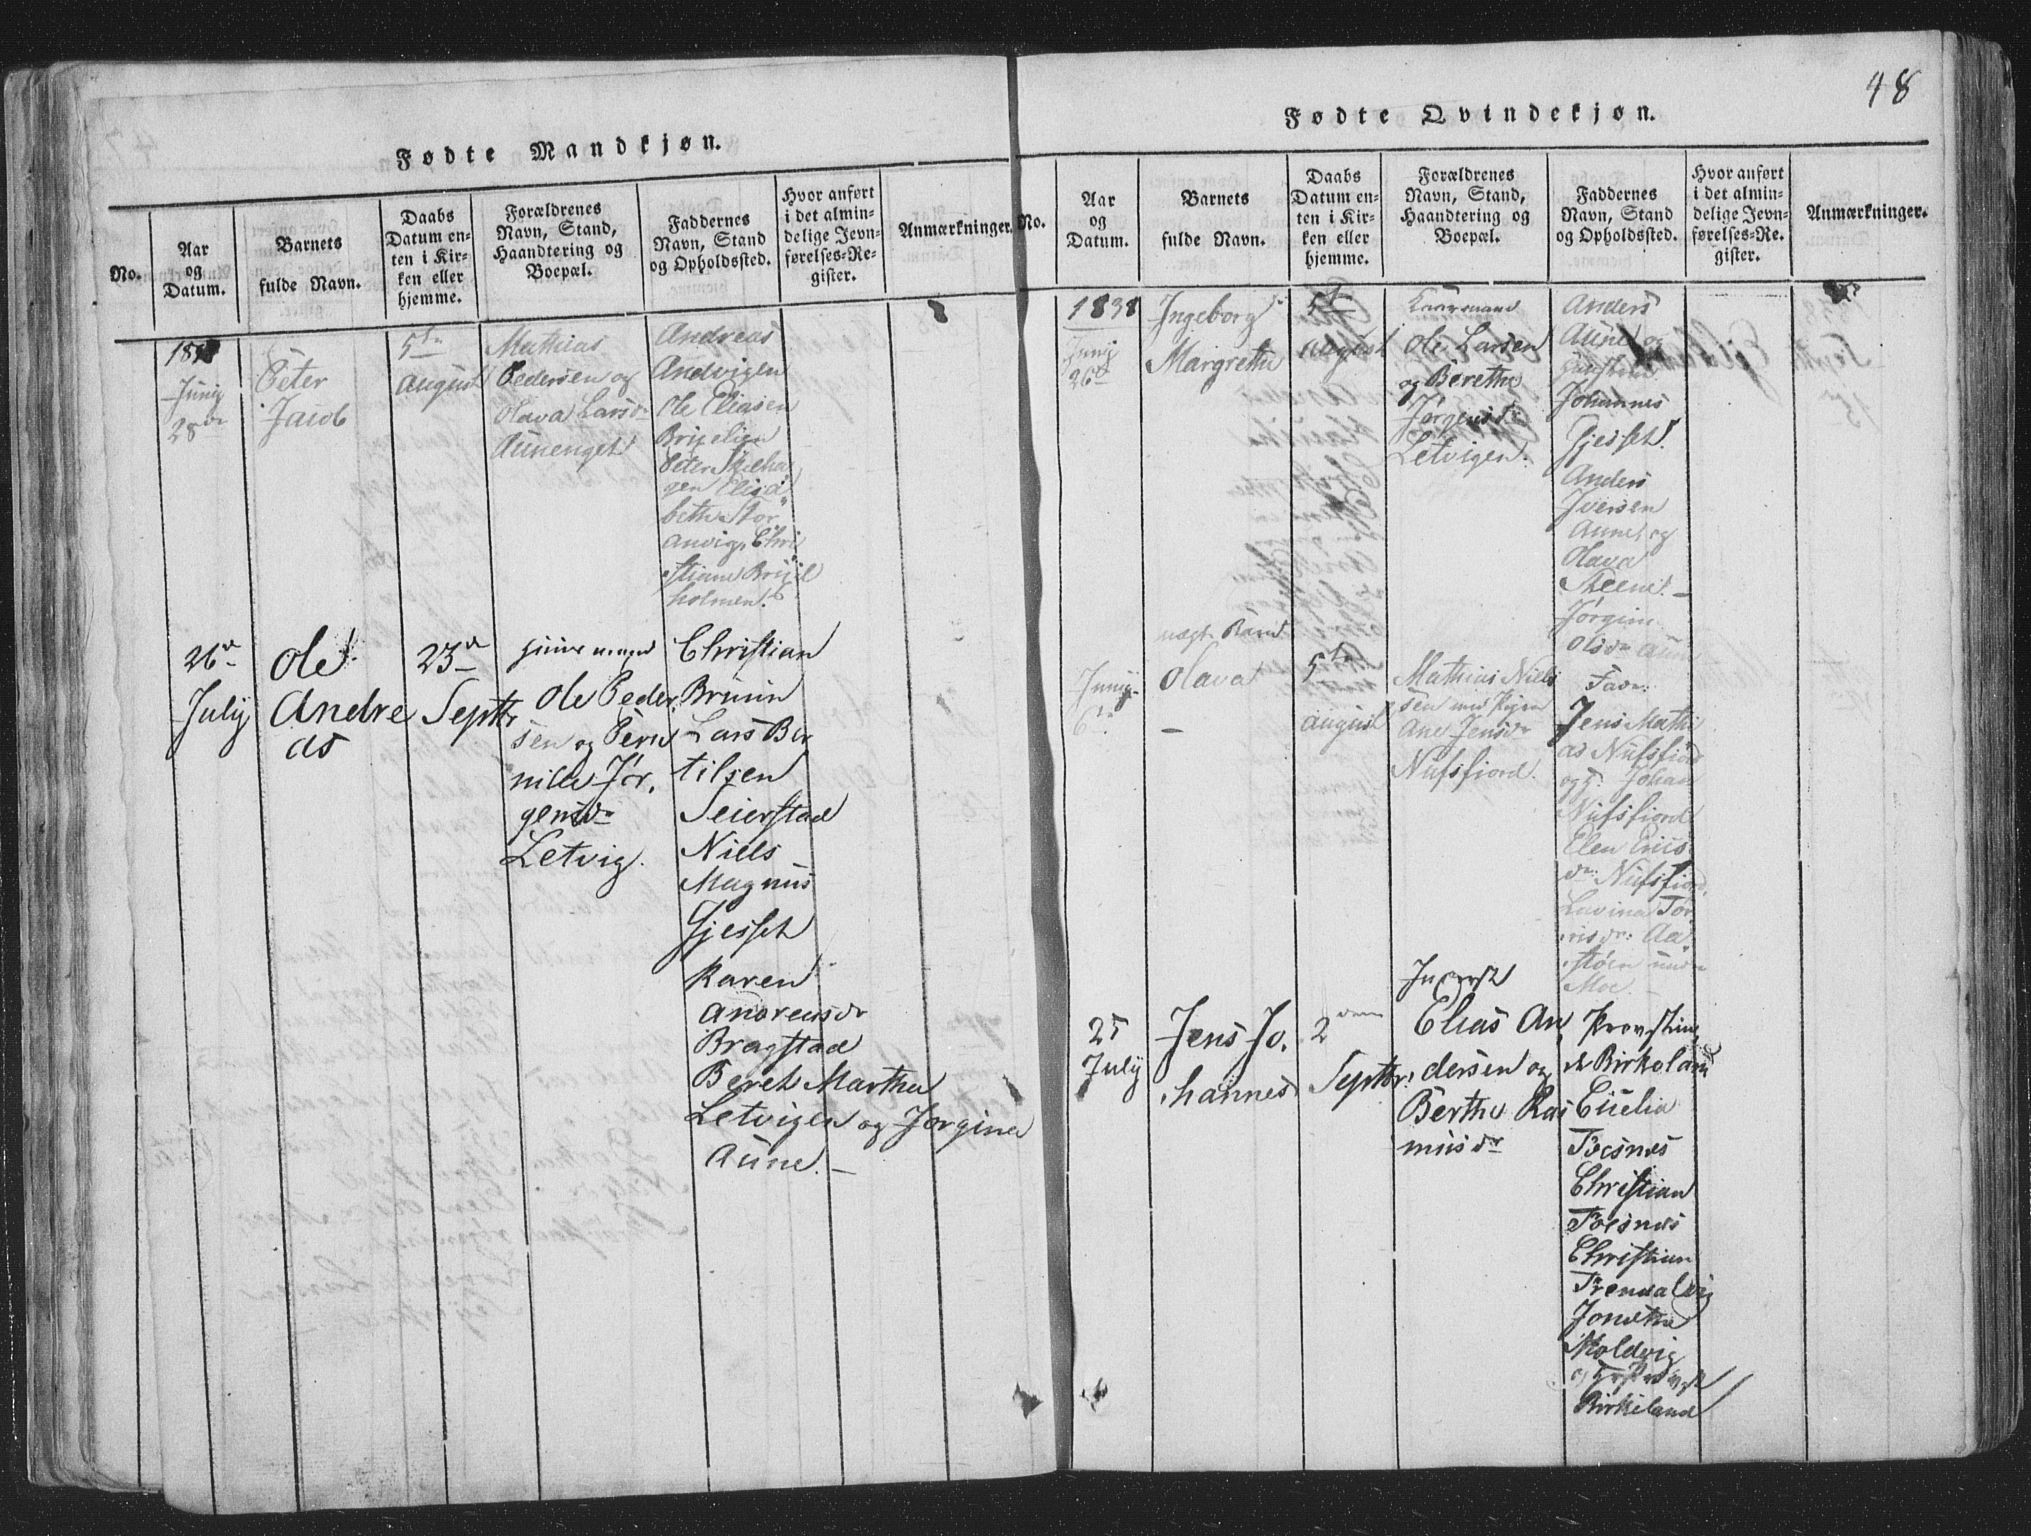 Fødte Mandkjøn.
No.
Aar
og
Datum.
Barnets
fulde Navn.
Daabs
Datum en-
ten i Kir-
ken eller
hjemme.
Forældrenes
Navn, Stand,
Haandtering og
Boepæl.
Faddernes
Navn, Stand
og Opholdssted.
Hvor anført
i det almin-
delige Jevn-
førelses-Re-
gister.
Anmærkninger.
Junij
28de
Peter
Jacob
5te
August
Mathias
Pedersen og
Olava Larsdr
Aunenget
Andreas
Andvigen
Ole Eliasen
Peter
gen Elisa
beth Stor
anvig, Chri
stiane
holmen.
26de
July
Ole
Andre
as
23de
Septbr
Ole Peder
sen og Pern
nille Jør,
gensdr
Letvig.
Christian
Bruun
Lars Ber
tilsen
Seierstad
Niels
Magnus
Gjesset
Karen
Andreasdr
Bragstad
Beret Martha
Letvigen og Jørgina
Aune. —
48
Fødte Qvindekjøn.
No.
Aar
og
Datum.
Barnets
fulde Navn.
Daabs
Datum en-
ten i Kir-
ken eller
hjemme.
Forældrenes
Navn, Stand,
Haandtering og
Boepæl.
Faddernes
Navn, Stand
og Opholdssted.
Hvor anført
i det almin-
delige Jevn-
førelses-Re-
gister.
Anmærkninger.
1838
Junij
26de
Ingeborg
Margrethe
5te
August
Ole Larsen
og Berethe
Jørgensdr
Letvigen.
Anders
Aune og
Johannes
Gjesset.
Anders
Iversen
Aune, og
Olava
Steene. —
Jørgine
Olsdr Aune
Junij
6te
uægte Barn
Olava
—
5te
August
Mathias Niels
sen med Pigen
Ane Jensdr
Nufsfiord.
Fadr:
Jens Mathi
as Nufsfiord
og Johan
Nufsfiord
Elen Erics
dr: Nufsfiord,
Lavina Tør
risdr: Aa
støen
Moe. —
25
July
Jens Jo,
hannes
2den
Septbr.
Elias An,
dersen og
Berthe Ras
musdr
Birkeland
Foesnes
Christian
Foesnes
Christian
Jonetha
Moldvig
Birkeland